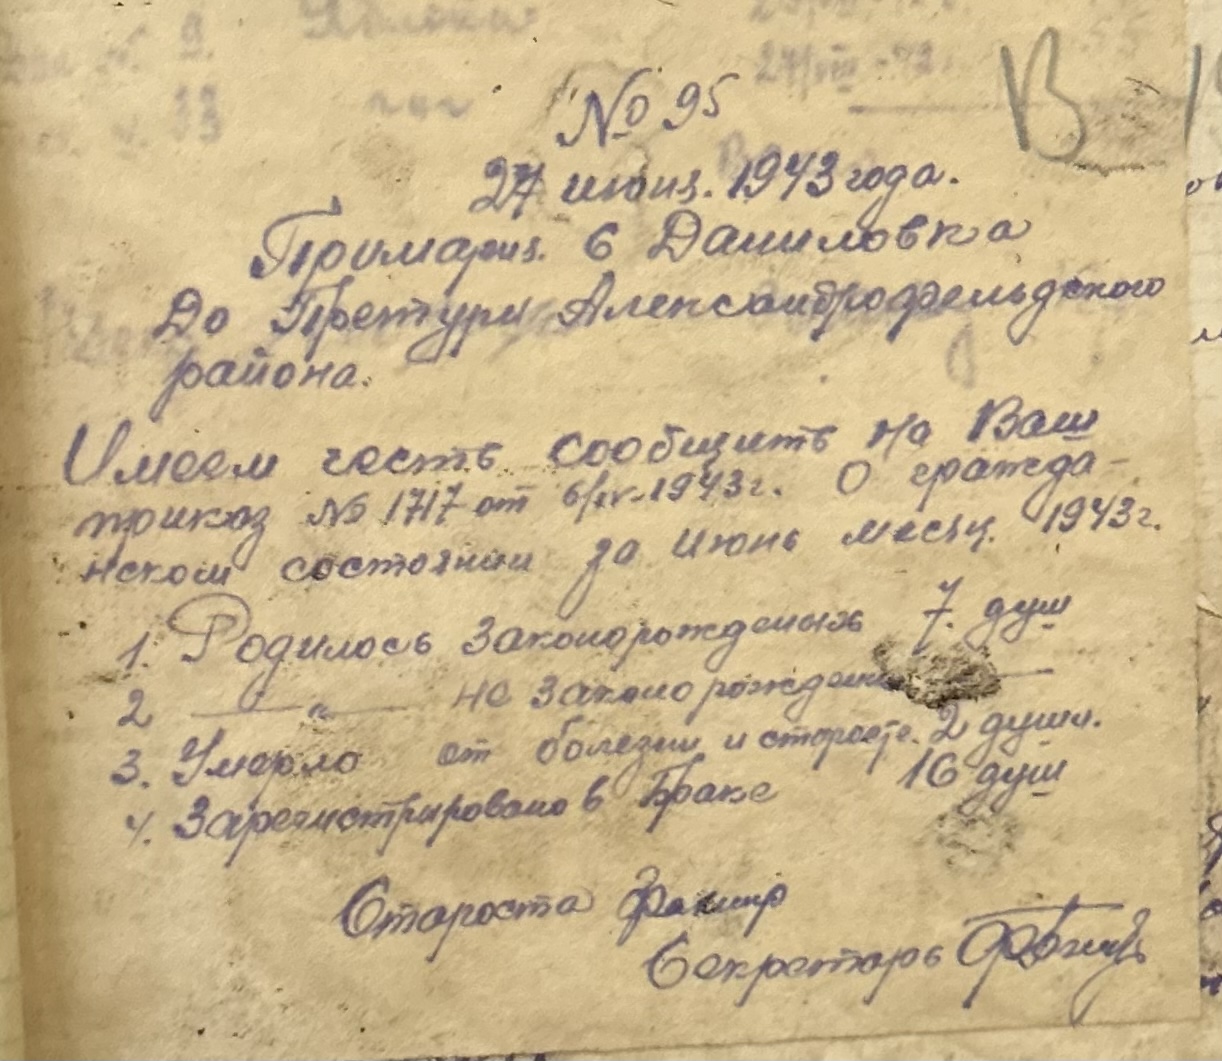 № 95
27 июня. 1943 года.
Примария. с Даниловка
До Претуры Александрофельдского
района.
Имеем честь сообщить на Ваш
приказ № 1717 от 6/IV-1943г. О гражда-
нском состоянии за Июнь месяц. 1943г.
1. Родилось Законорожденых 7. душ
2 —"— не Законорожден —
3. Умерло от болезни и старосте. 2 души.
4. Зарегистрировано в Браке 16 душ
Староста
Секретарь
В